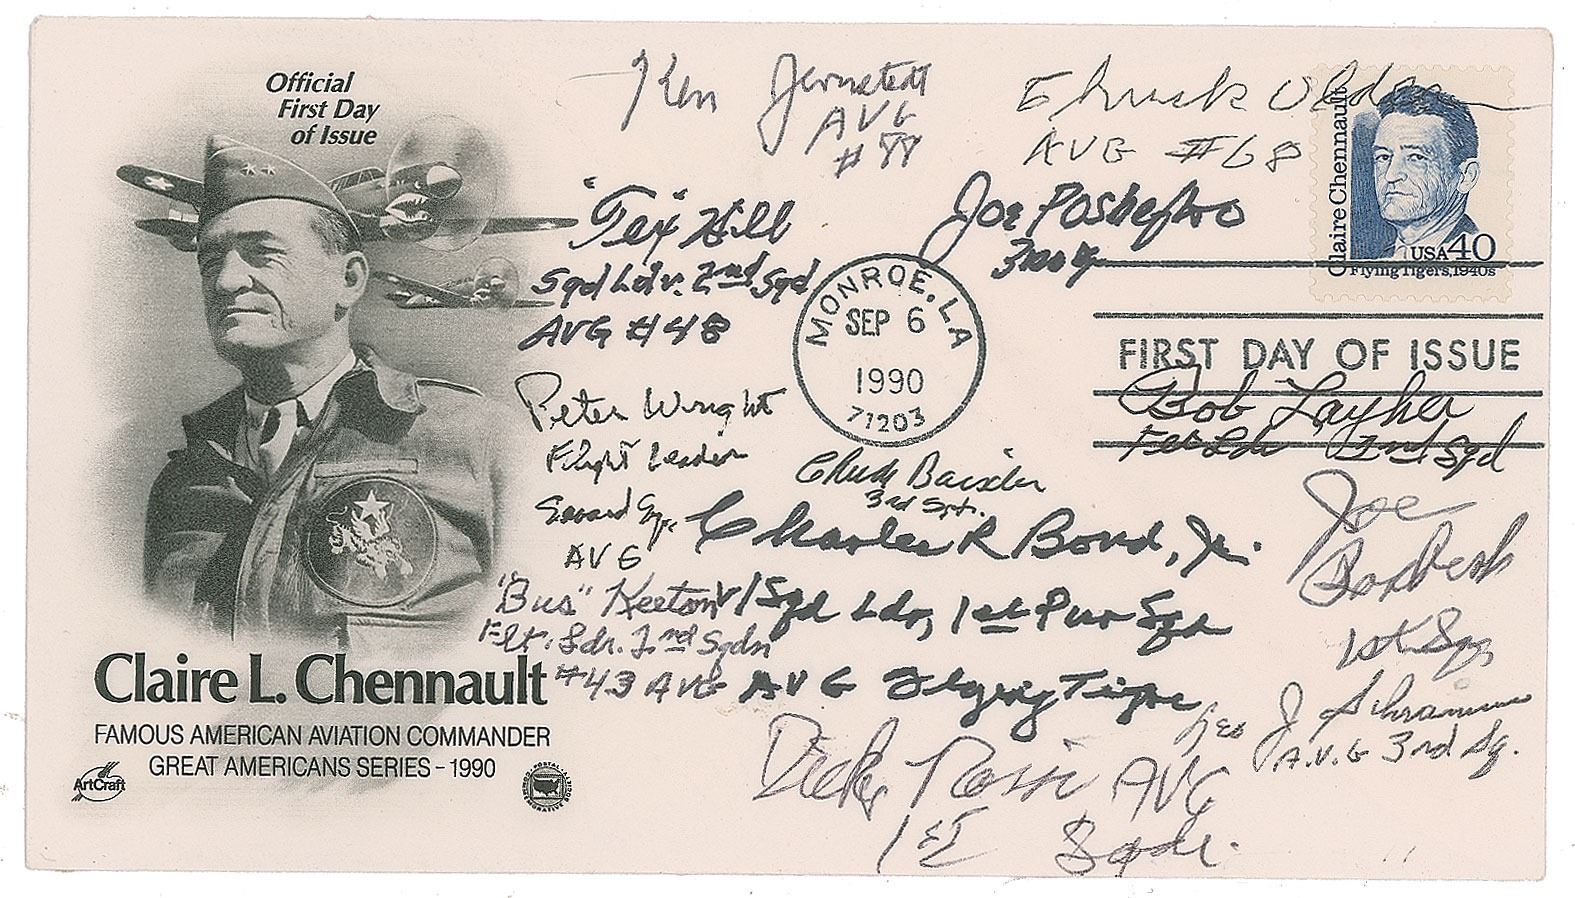 Official
First Day
of Issue
Ken Jernstedt
AVG
# 88
Chuck Older
AVG #68
Claire Chennault
USA 40
Flying Tigers, 1940s
"Tex" Hill
Sqd Ldr. 2nd Sqd
AVG #48
Joe Poshefko
3rd
MONROE, LA
SEP 6
1990
71203
FIRST DAY OF ISSUE
Bob Layher
Flt Ldr 2nd Sqd
Peter Wright
Flight Leader
Second Sq.
AVG
Chuck Baisden
3rd Sq.
Charles R Bond, Jr.
V/Sqd Ldr, 1st Pur Sqd
AVG Flying Tigers
"Bus" Keeton
Flt. Ldr. 2nd Sqdn
#43 AVG
Joe
1st Sq
Leo J Schramm
A.V.G 3rd Sq.
Dick Rossi AVG
1st Sqdr.
Claire L. Chennault
FAMOUS AMERICAN AVIATION COMMANDER
GREAT AMERICANS SERIES - 1990
ArtCraft